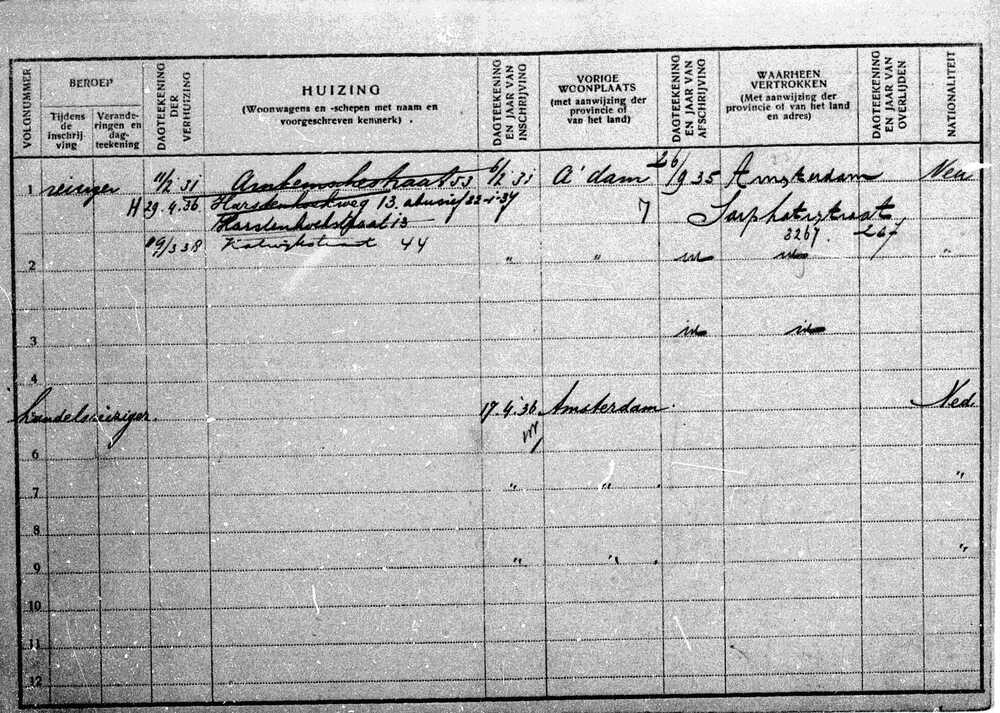 VOLGNUMMER
BEROEP
Tijdens de inschrijving
Verande-ringen en dag-teekening
DAGTEEKENING DER VERHUIZING
HUIZING
(Woonwagens en -schepen met naam en voorgeschreven kenmerk)
DAGTEEKENING EN JAAR VAN INSCHRIJVING
VORIGE WOONPLAATS
(met aanwijzing der provincie of van het land)
DAGTEEKENING EN JAAR VAN AFSCHRIJVING
WAARHEEN VERTROKKEN
(Met aanwijzing der provincie of van het land en adres)
DAGTEEKENING EN JAAR VAN OVERLIJDEN
NATIONALITEIT
1 reiziger 11/2 31 Arnhemschestraat 53 6/2 31 A'dam 26/9 35 Amsterdam Ned
H 29.4.36 Harstenhoekweg 13. abusief 22-1-37 7 Sarphatistraat
Harstenhoekstraat 13 3267. 267
19/3 38 Katwijkstraat 44
2 " " id id "
3 id id
4
handelsreiziger. 17.4.'36 Amsterdam. Ned.
6
7 " " "
8
9 " " "
10
11
12